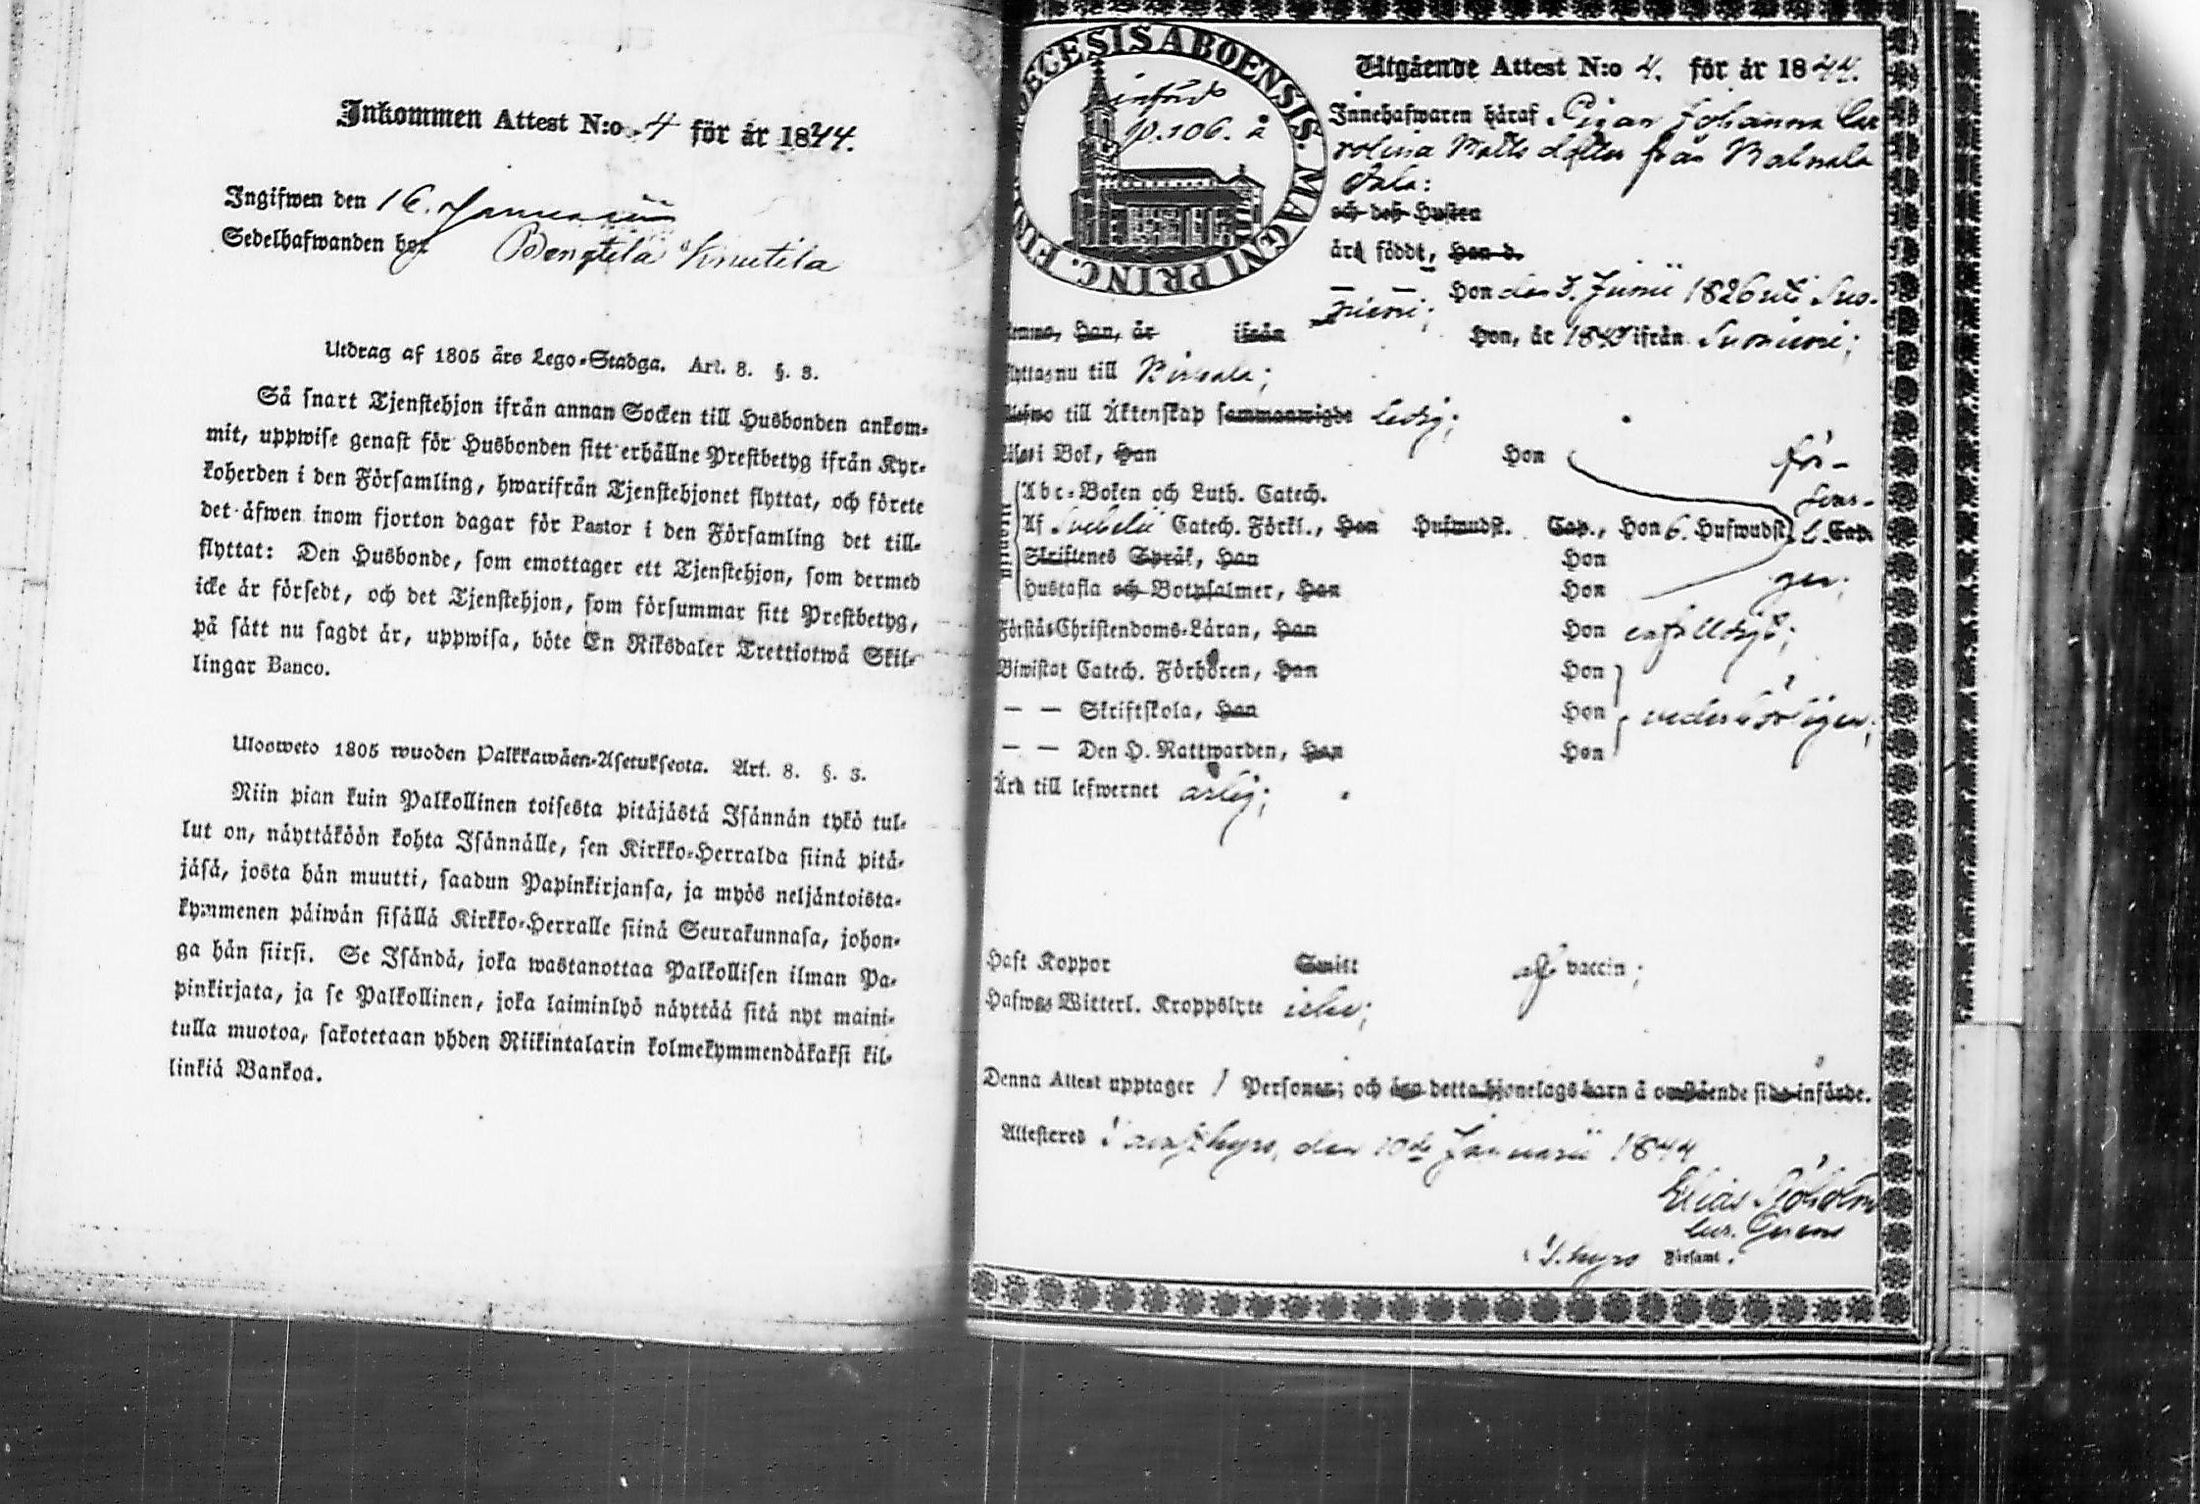 Inkommen Attest N:o 4 för år 1844.
Ingifwen den 16. Januarii
Sedelhafwanden hos Bengtilä Knutila
Utdrag af 1805 års Lego-Stadga. Art. 8. §. 3.
Så snart Tjenstehjon ifrån annan Socken till Husbonden ankom-
mit, uppwise genast för Husbonden sitt erhållne Prestbetyg ifrån Kyr-
koherden i den Församling, hwarifrån Tjenstehjonet flyttat, och förete
det äfwen inom fjorton dagar för Pastor i den Församling det till-
flyttat: Den Husbonde, som emottager ett Tjenstehjon, som dermed
icke är försedt, och det Tjenstehjon, som försummar sitt Prestbetyg,
på sätt nu sagdt är, uppwisa, böte En Riksdaler Trettiotwå Skil-
lingar Banco.
Ulosweto 1805 wuoden Palkkawäen-Asetuksesta. Art. 8. §. 3.
Niin pian kuin Palkollinen toisesta pitäjästä Isännän tykö tul-
lut on, näyttäköön kohta Isännälle, sen Kirkko-Herralda siinä pitä-
jäsä, josta hän muutti, saadun Papinkirjansa, ja myös neljäntoista-
kymmenen päiwän sisällä Kirkko-Herralle siinä Seurakunnasa, johon-
ga hän siirsi. Se Isändä, joka wastanottaa Palkollisen ilman Pa-
pinkirjata, ja se Palkollinen, joka laiminlyö näyttää sitä nyt maini-
tulla muotoa, sakotetaan yhden Riikintalarin kolmekymmendäkaksi kil-
linkiä Bankoa.
DIOECESIS ABOENSIS. MAGNI PRINC. FINL.
införd
p. 106. å
Utgående Attest N:o 4. för år 1844.
Innehafwaren häraf, Pigan Johanna Ca
rolina Matts dotter från
och deß Hustru
ärå föddt, Han d.
Hon den 3. Junii 1826 uti Suo-
niemi;
Han, år ifrån Hon, år 1843 ifrån Suoniemi;
flyttas nu till Birkala;
till Äktenskap sammanwigde ledig;
Läser i Bok, Han Hon för-
Abc-Boken och Luth. Catech. swar-
Af Svebelii Catech. Förkl., Han Hufwudst. Cap., Hon 6. Hufwudst. Cap.
Skriftenes Språk, Han Hon
Hustafla och Botpsalmer, Han Hon gen;
Utantill
Förstås Christendoms-Läran, Han Hon enfalldigt;
Biwistat Catech. Förhören, Han Hon
— — Skriftskola, Han Hon vederbörligen;
— — Den H. Nattwarden, Han Hon
Ärå till lefwernet ärlig;
Haft Koppor Smitt af vaccin;
Hafwas Witterl. Kroppslyte icke;
Denna Attest upptager 1 Personer; och äro detta hjonelags barn å omstående sida införde.
Attesteres i Tawastkyro, den 10de Januarii 1844
Elias Sjöholm
i T. kyro FörSaml.